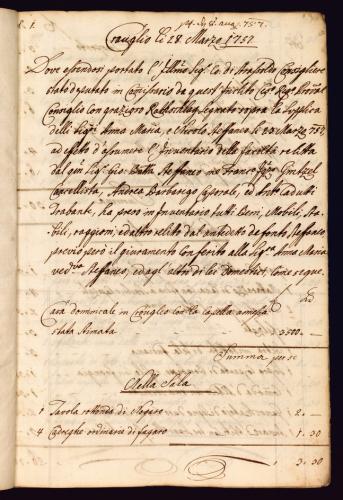 1.
Crauglio li 28 Marzo 1757
Dove essendosi portato l'Illmo Sigr Co: di Consigliere
stato deputato in Comissario da quest' Inclito Ces: Reg: 
Consiglio con grazioso segnato sopra la Supplica
delli Sigri Anna Maria, e Nicolò Steffaneo li 23 Marzo 757
ad effetto d'assumere l'Inventario della facoltà relitta
dal qm Sigr Gio: Batta Steffaneo
Cancellista, Andrea Barbarigo Caporale, ed Antº
Trabante, ha preso in Inventario tutti Beni, Mobili, Sta-
bili, raggioni, ed altro relitto dal predetto defonto Steffaneo,
previo però il giuramento conferito alla Sigra Anna Maria
vedva Steffaneo, ed agl' altri di lei domestici, come segue.
Casa dominicale in Crauglio con la Capella annessa
stata stimata 3500. —
Summa per se
Nella Sala
1 Tavola rottonda di Nogaro 2. —
4 Cadreghe ordinarie di fagaro 1. 30
3. 30